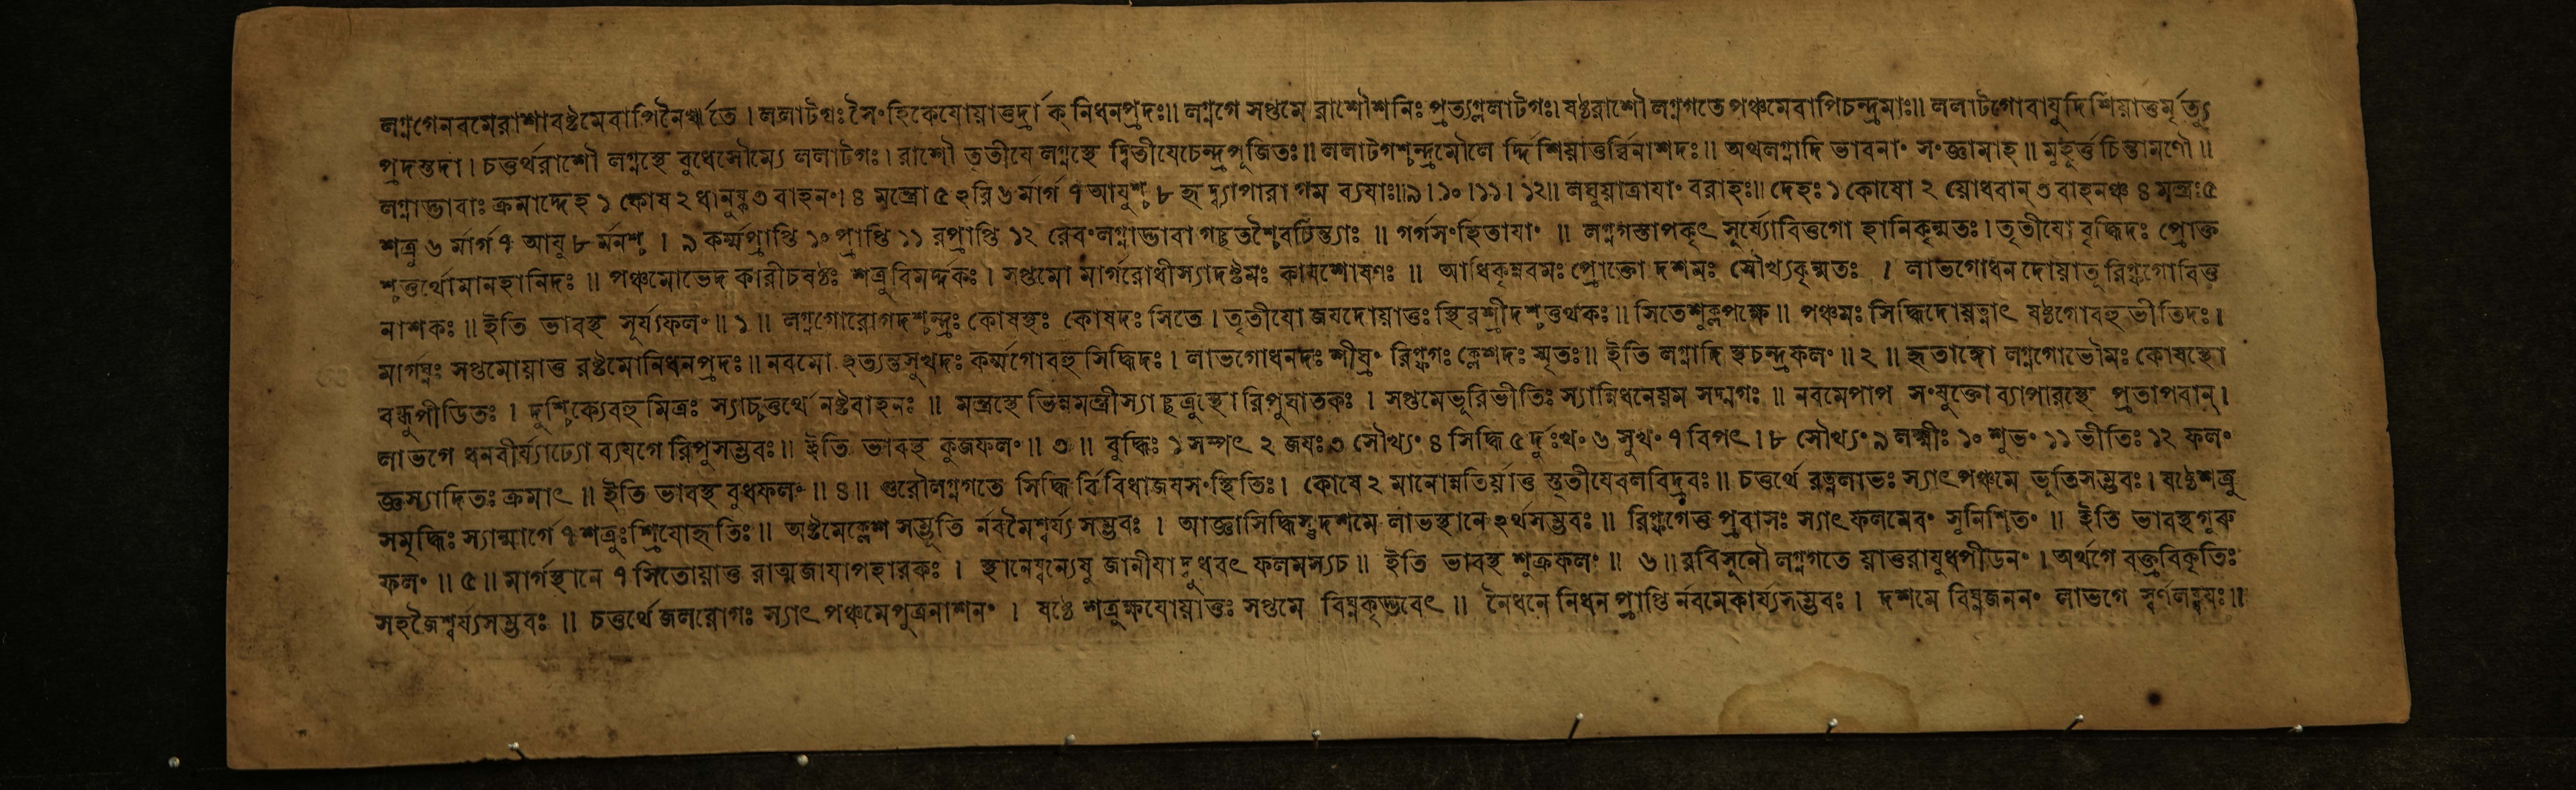 লগ্নগেনবমেরাশাবষ্টমেবাপিনৈরৃতে। ললাটগঃ সৈংহিকেযোয়াত্তুর্দ্রাক্ নিধনপ্রদঃ॥ লগ্নগে সপ্তমে রাশৌশনিঃ প্রত্যগ্ললাটগঃ। ষষ্ঠরাশৌ লগ্নগতে পঞ্চমেবাপিচন্দ্রমাঃ॥ ললাটগোবাযুদিশিয়াত্তুর্মৃত্যু
প্রদস্তদা। চত্তুর্থরাশৌ লগ্নস্থে বুধেসৌম্যে ললাটগঃ। রাশৌ তৃতীযে লগ্নস্থে দ্বিতীযেচেন্দ্রপূজিতঃ॥ ললাটগশ্চন্দ্রমৌলে র্দ্দিশিয়াত্তুর্ব্বিনাশদঃ॥ অথলগ্নাদি ভাবনাং সংজ্ঞামাহ॥ মুহূর্ত্তচিন্তামণৌ॥
লগ্নাদ্ভাবাঃ ক্রমাদ্দেহ ১ কোষ ২ ধানুষ্ক ৩ বাহনং। ৪ মন্ত্রো ৫ ঽরি ৬ র্মার্গ ৭ আযুশ্চ ৮ হৃদ্ব্যাপারা গম ব্যযাঃ॥৯।১০।১১।১২॥ লঘুয়াত্রাযাং বরাহঃ॥ দেহঃ ১ কোষো ২ য়োধবান্ ৩ বাহনঞ্চ ৪ মন্ত্রঃ ৫
শত্রু ৬ র্মার্গ ৭ আযু ৮ র্মনশ্চ। ৯ কর্ম্মপ্রাপ্তি ১০ প্রাপ্তি ১১ রপ্রাপ্তি ১২ রেবং লগ্নাদ্ভাবা গচ্ছতশ্চৈবচিন্ত্যাঃ॥ গর্গসংহিতাযাং॥ লগ্নগস্তাপকৃৎ সূর্য্যোবিত্তগো হানিকৃন্মতঃ। তৃতীযো বৃদ্ধিদঃ প্রোক্ত
শ্চত্তুর্থোমানহানিদঃ॥ পঞ্চমোভেদ কারীচষষ্ঠঃ শত্রুবিমর্দ্দকঃ। সপ্তমো মার্গরোধীস্যাদষ্টমঃ কাযশোষণঃ॥ আধিকৃন্নবমঃ প্রোক্তো দশমঃ সৌখ্যকৃন্মতঃ। লাভগোধনদোয়াতুরিপ্ফগোবিত্ত
নাশকঃ॥ ইতি ভাবস্থ সূর্য্যফলং॥ ১॥ লগ্নগোরোগদশ্চন্দ্রঃ কোষস্থঃ কোষদঃ সিতে। তৃতীযো জযদোয়াত্তুঃ স্থিরশ্রীদশ্চত্তুর্থকঃ॥ সিতেশুক্লপক্ষে॥ পঞ্চমঃ সিদ্ধিদোয়ত্নাৎ ষষ্ঠগোবহু ভীতিদঃ।
মার্গঘ্নঃ সপ্তমোয়াত্তু রষ্টমোনিধনপ্রদঃ॥ নবমো ঽত্যন্তসুখদঃ কর্ম্মগোবহু সিদ্ধিদঃ। লাভগোধনদঃ শীঘ্রং রিপ্ফগঃ ক্লেশদঃ স্মৃতঃ॥ ইতি লগ্নাদি স্থচন্দ্রফলং॥ ২॥ হৃতাঙ্গো লগ্নগোভৌমঃ কোষস্থো
বন্ধুপীডিতঃ। দুশ্চিক্যেবহু মিত্রঃ স্যাচ্চত্তুর্থে নষ্টবাহনঃ॥ মন্ত্রস্থে ভিন্নমন্ত্রীস্যাচ্ছত্রুস্থো রিপুঘাতকঃ। সপ্তমেভূরিভীতিঃ স্যান্নিধনেয়ম সদ্মগঃ॥ নবমেপাপ সংযুক্তো ব্যাপারস্থে প্রতাপবান্।
লাভগে ধনবীর্য্যাঢ্যো ব্যযগে রিপুসম্ভবঃ॥ ইতি ভাবস্থ কুজফলং॥ ৩॥ বুদ্ধিঃ ১ সম্পৎ ২ জযঃ ৩ সৌখ্যং ৪ সিদ্ধি ৫ র্দুঃখং ৬ সুখং ৭ বিপৎ।৮ সৌখ্যং ৯ লক্ষ্মীঃ ১০ শুভং ১১ ভীতিঃ ১২ ফলং
জ্ঞস্যাদিতঃ ক্রমাৎ॥ ইতি ভাবস্থ বুধফলং॥ ৪॥ গুরৌলগ্নগতে সিদ্ধি র্বিবিধাজযসংস্থিতিঃ। কোষে ২ মানোন্নতির্য়াত্তু স্তৃতীযেবলবিদ্রবঃ॥ চত্তুর্থে রত্নলাভঃ স্যাৎ পঞ্চমে ভূতিসম্ভবঃ। ষষ্ঠেশত্রু
সমৃদ্ধিঃ স্যান্মার্গে ৭ শত্রুঃশ্রিযোহৃতিঃ॥ অষ্টমেক্লেশ সম্ভূতি র্নবমৈশ্বর্য্য সম্ভবঃ। আজ্ঞাসিদ্ধিস্তুদশমে লাভস্থানে ঽর্থসম্ভবঃ॥ রিপ্ফগেত্তু প্রবাসঃ স্যাৎ ফলমেবং সুনিশ্চিতং॥ ইতি ভাবস্থগুরু
ফলং॥ ৫॥ মার্গস্থানে ৭ সিতোয়াত্তু রাত্মজাযাপহারকঃ। স্থানেষ্বন্যেষু জানীযাদ্বুধবৎ ফলমস্যচ॥ ইতি ভাবস্থ শুক্রফলং॥ ৬॥ রবিসূনৌ লগ্নগতে য়াত্তুরাযুধপীডনং। অর্থগে বক্ত্রবিকৃতিঃ
সহজৈশ্বর্য্যসম্ভবঃ॥ চত্তুর্থে জলরোগঃ স্যাৎ পঞ্চমেপুত্রনাশনং। ষষ্ঠে শত্রুক্ষযোয়াত্তুঃ সপ্তমে বিঘ্নকৃদ্ভবেৎ॥ নৈধনে নিধন প্রাপ্তি র্নবমেকার্য্যসম্ভবঃ। দশমে বিঘ্নজননং লাভগে স্বর্ণলব্ধযঃ॥